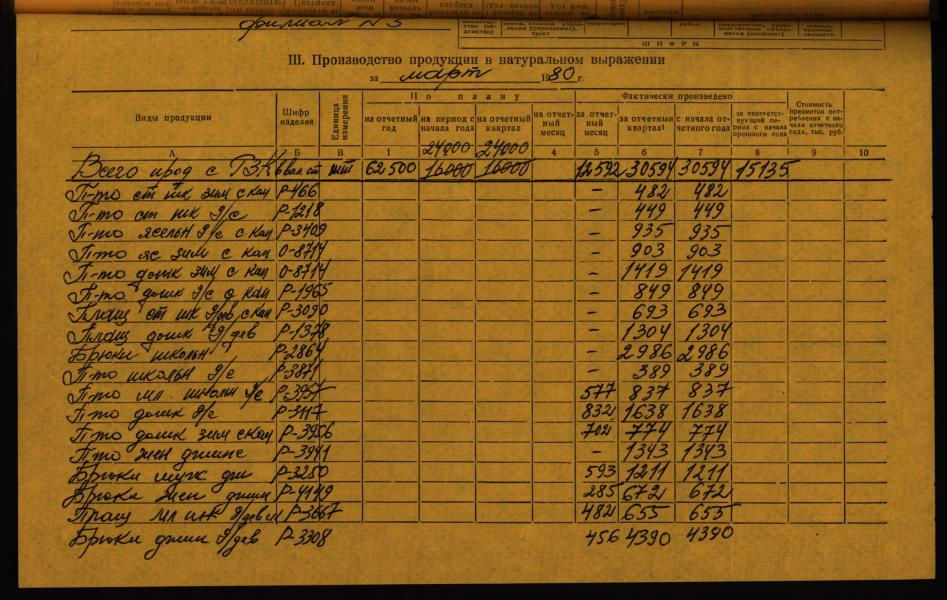 филиал №3
министерство (ведомство)
территория
район
ШИФРЫ
III. Производство продукции в натуральном выражении
за март 1980 г.
Виды продукции
Шифр изделия
Единица измерения
По плану
Фактически произведено
на отчетный год
на период с начала года
на отчетный квартал
на отчетный месяц
за отчетный месяц
за отчетный квартал¹
с начала отчетного года
за соответствующий период с начала прошлого года
Стоимость предметов потребления с начала отчетного года, тыс. руб.
А Б В 1 2 3 4 5 6 7 8 9 10
24000 24000
Всего прод с РЗК в вал. ст шт 62500 16000 16000 12592 30594 30594 15135
П-то ст шк зим с кап Р-466 – 482 482
П-то ст шк д/с Р-1218 – 449 449
П-то ясельн д/с с кап Р-3409 – 935 935
П-то яс зим с кап О-8714 – 903 903
П-то дошк зим с кап О-8714 – 1419 1419
П-то дошк д/с с кап Р-1965 – 849 849
Плащ ст шк д/дев с кап Р-3090 – 693 693
Плащ дошк д/дев Р-1378 – 1304 1304
Брюки школьн Р-2864 – 2986 2986
П-то школьн д/с Р-3871 – 389 389
П-то мл школьн д/с Р-3957 577 837 837
П-то дошк д/с Р-3117 832 1638 1638
П-то дошк зим с кап Р-3956 702 774 774
П-то жен джинс Р-3941 – 1343 1343
Брюки мужс дж Р-3250 593 1211 1211
Брюки жен джин Р-4149 285 672 672
Плащ мл шк д/дев Р-3667 482 655 655
Брюки джин д/дев Р-3308 456 4390 4390